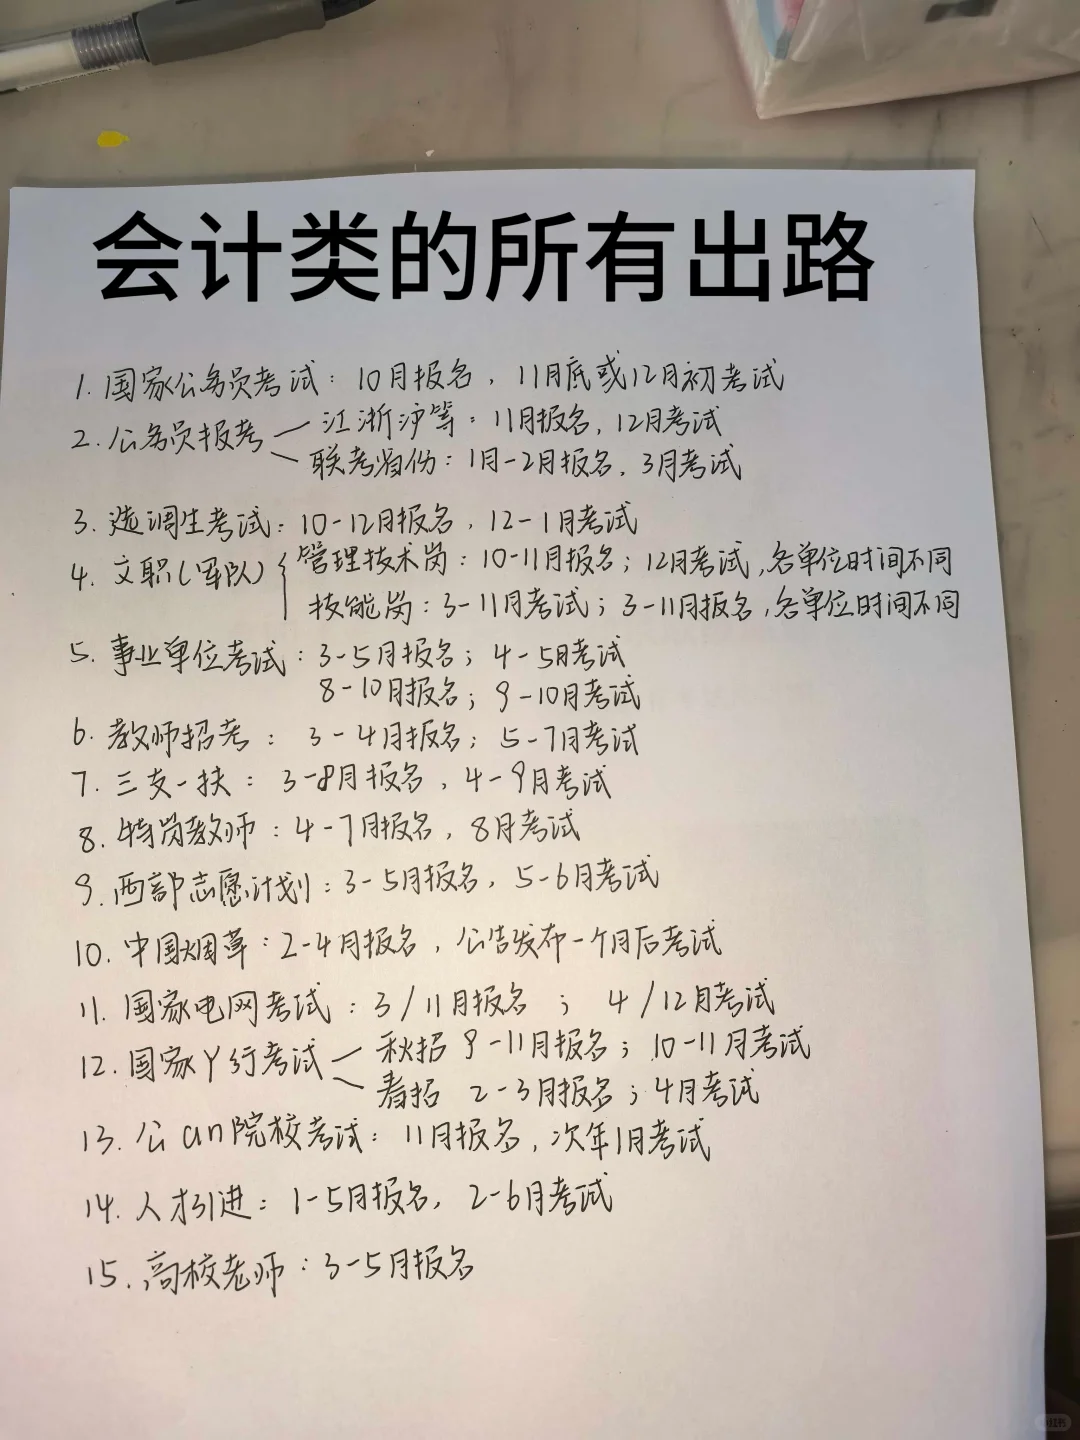 会计类的所有出路
1. 国家公务员考试：10月报名，11月底或12月初考试
2. 公务员报考 江浙沪等：11月报名，12月考试
联考省份：1月-2月报名，3月考试
3. 选调生考试：10-12月报名，12-1月考试
4. 文职(军队) 管理技术岗：10-11月报名；12月考试，各单位时间不同
技能岗：3-11月考试；3-11月报名，各单位时间不同
5. 事业单位考试：3-5月报名；4-5月考试
8-10月报名；9-10月考试
6. 教师招考：3-4月报名；5-7月考试
7. 三支一扶：3-8月报名，4-9月考试
8. 特岗教师：4-7月报名，8月考试
9. 西部志愿计划：3-5月报名，5-6月考试
10. 中国烟草：2-4月报名，公告发布一个月后考试
11. 国家电网考试：3/11月报名；4/12月考试
12. 国家Y行考试 秋招 9-11月报名；10-11月考试
春招 2-3月报名；4月考试
13. 公an院校考试：11月报名，次年1月考试
14. 人才引进：1-5月报名，2-6月考试
15. 高校老师：3-5月报名